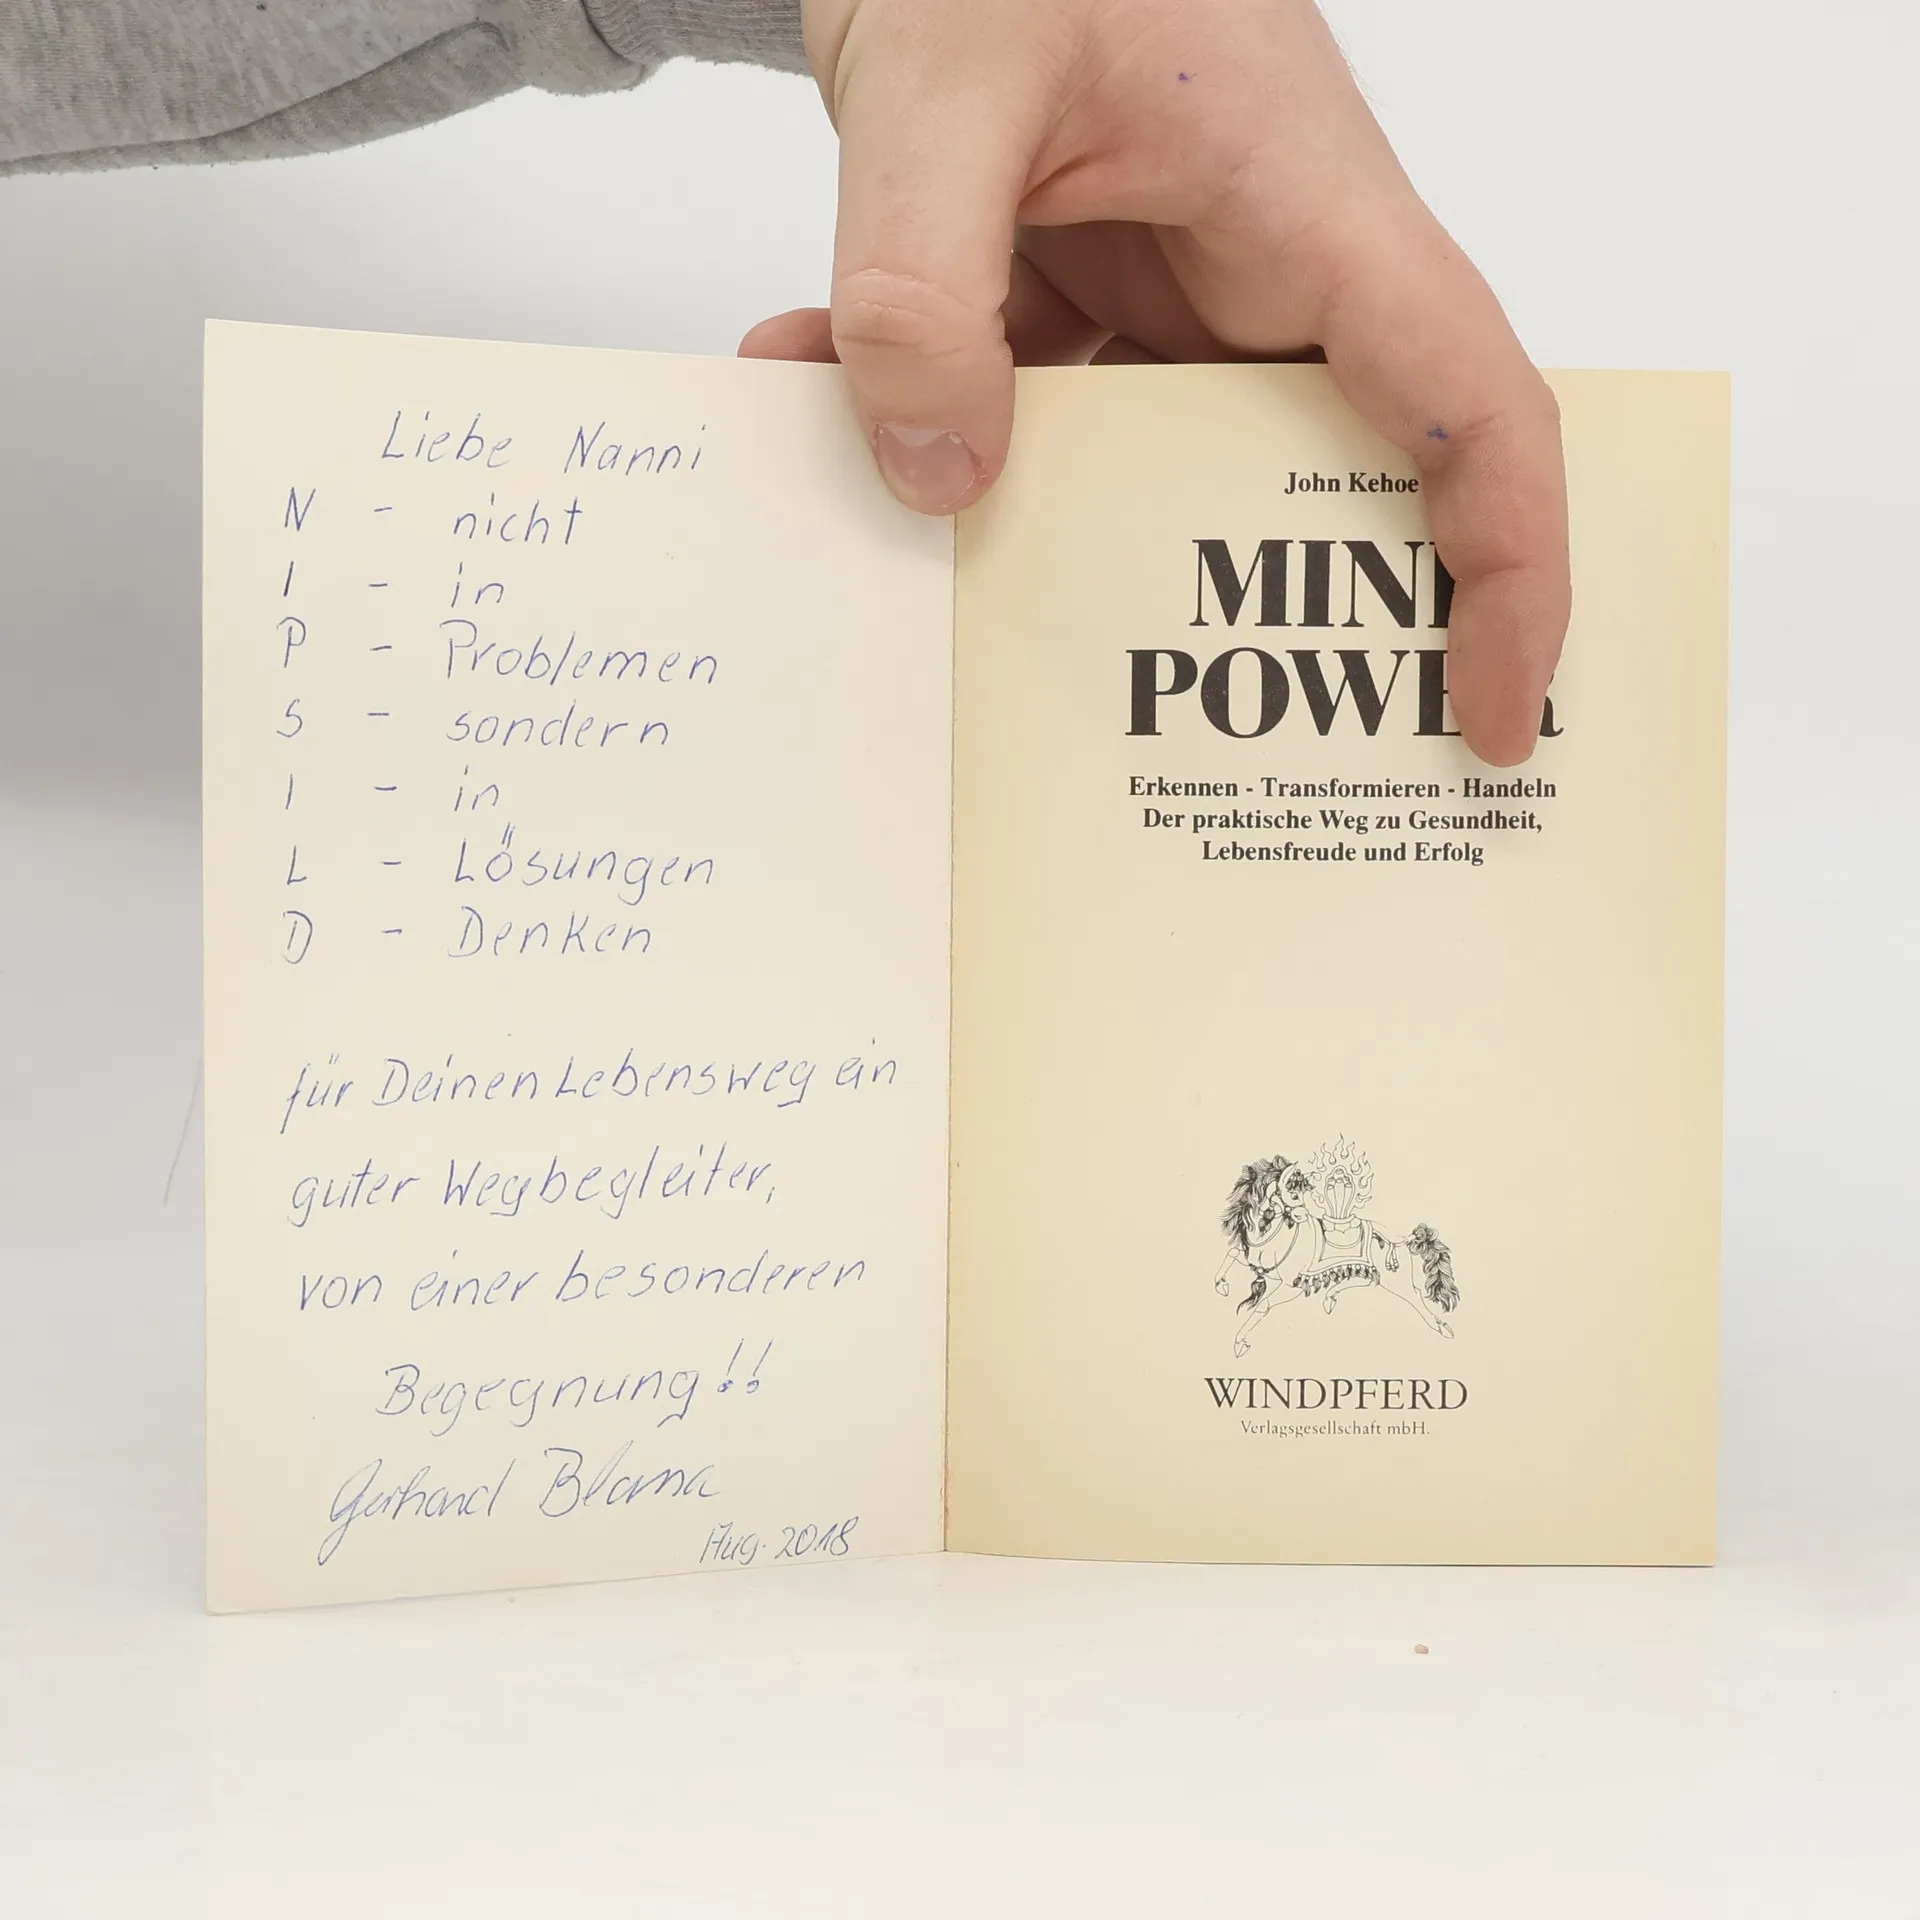 Liebe Nanni
N - nicht
I - in
P - Problemen
S - sondern
I - in
L - Lösungen
D - Denken
für Deinen Lebensweg ein
guter Wegbegleiter,
von einer besonderen
Begegnung!!
Gerhard
Aug. 2018
John Kehoe
MIND
POWER
Erkennen - Transformieren - Handeln
Der praktische Weg zu Gesundheit,
Lebensfreude und Erfolg
WINDPFERD
Verlagsgesellschaft mbH.